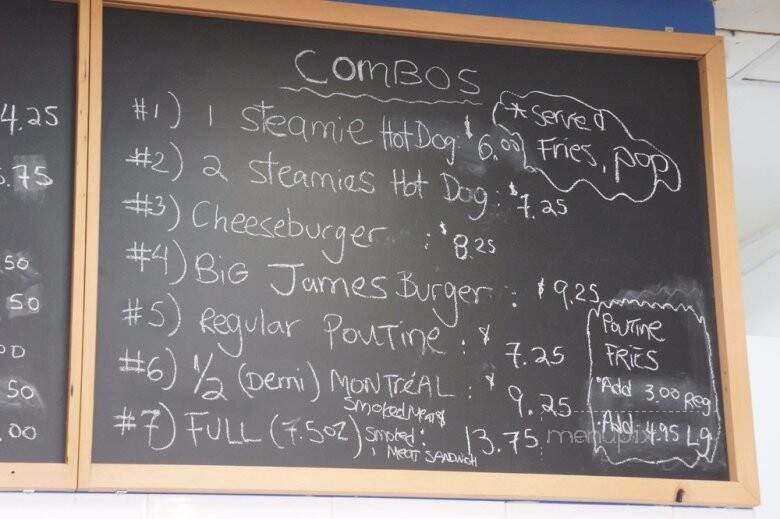 4.25
.75
50
50
50
.00
ComBOS
#1) 1 Steamie Hot Dog: $6.00
* Served
Fries, pop
#2) 2 Steamies Hot Dog: $7.25
#3) Cheeseburger : $8.25
#4) BiG James Burger : $9.25
#5) Regular PouTine : $7.25
#6) 1/2 (Demi) MONTRÉAL : $9.25
Smoked Meat
#7) FULL (7.50Z) Smoked : 13.75
MEAT SANDWICH
PouTine
FRIES
*Add 3.00 Reg
*Add 4.95 Lg
menupix